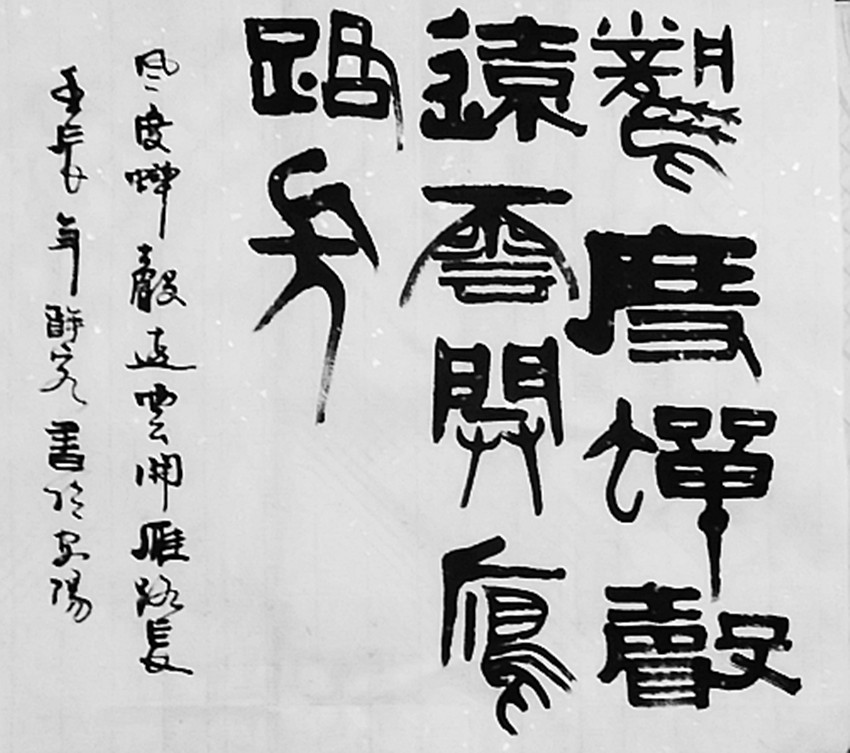 風度蟬聲
遠雲開鴈
路長
风度蟬聲遠雲開雁路長
壬辰年書於安陽